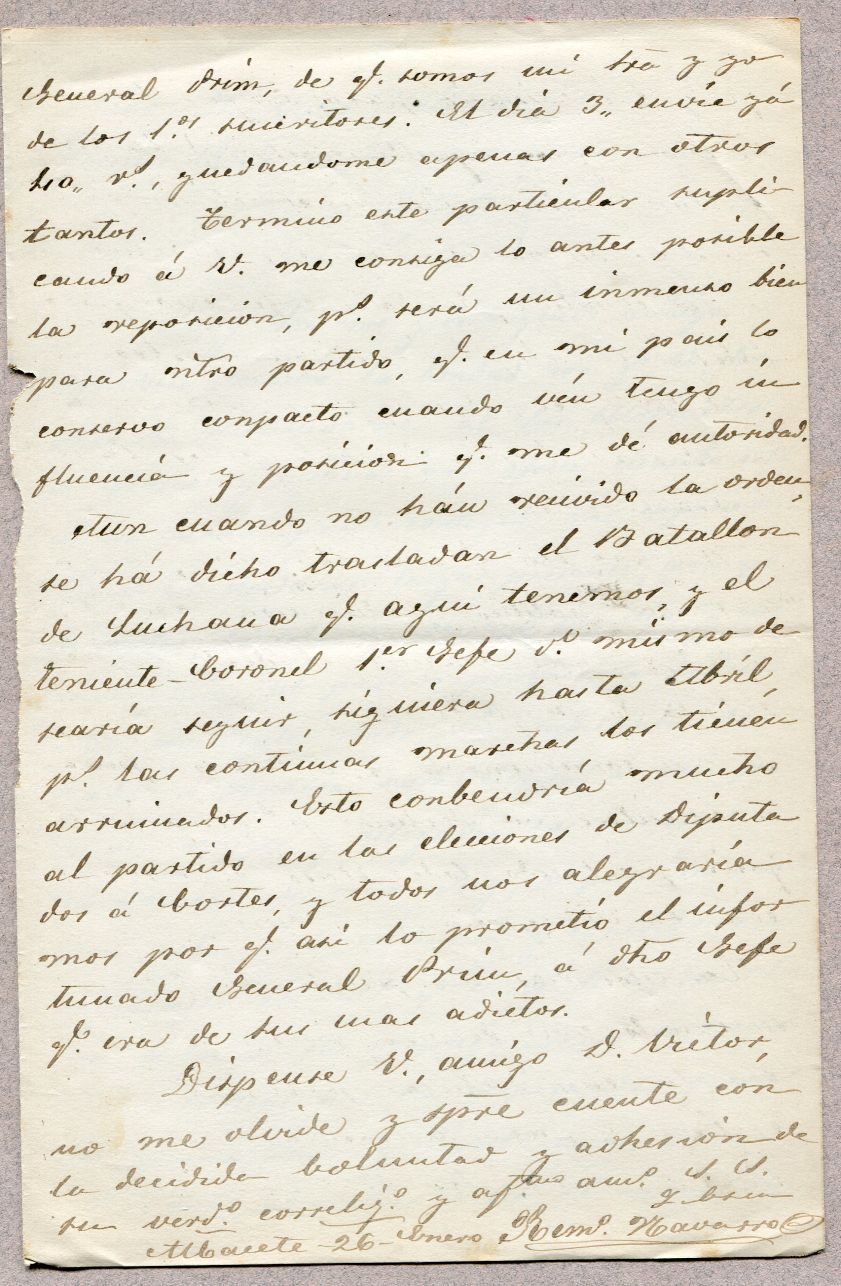 General Prim, de q.e somos mi sra y yo
de los 1.os sucritores. El dia 3,, envie yá
40,, r.s, quedandome apenas con otros
tantos. Termino este particular supli-
cando á V. me consiga lo antes posible
la reposicion, p.s será un inmenso bien
para ntro partido, q.e en mi pais lo
conservo conpacto cuando vén tengo in
fluencia y posicion q.e me dé autoridad.
Aun cuando no hán recivido la orden,
se há dicho trasladan el Batallon
de Luchana q.e aqui tenemos, y el
teniente-Coronel 1.er Gefe d.l mismo de
searía seguir, siguiera hasta Abril,
p.s las continuas marchas los tienen
arruinados. Esto conbendría mucho
al partido en las elecciones de Diputa
dos á Cortes, y todos nos alegraría
mos por q.e asi lo prometió el infor
tunado General Prim, á dho Gefe
q.e era de sus mas adictos.
Dispense V., amigo D. Victor,
no me olvide y spre cuente con
la decidida boluntad y adhesion de
su verd.o correlig.o y af.mo am.o S. S.
q bsm
Albacete 26 Enero Rem.o Navarro